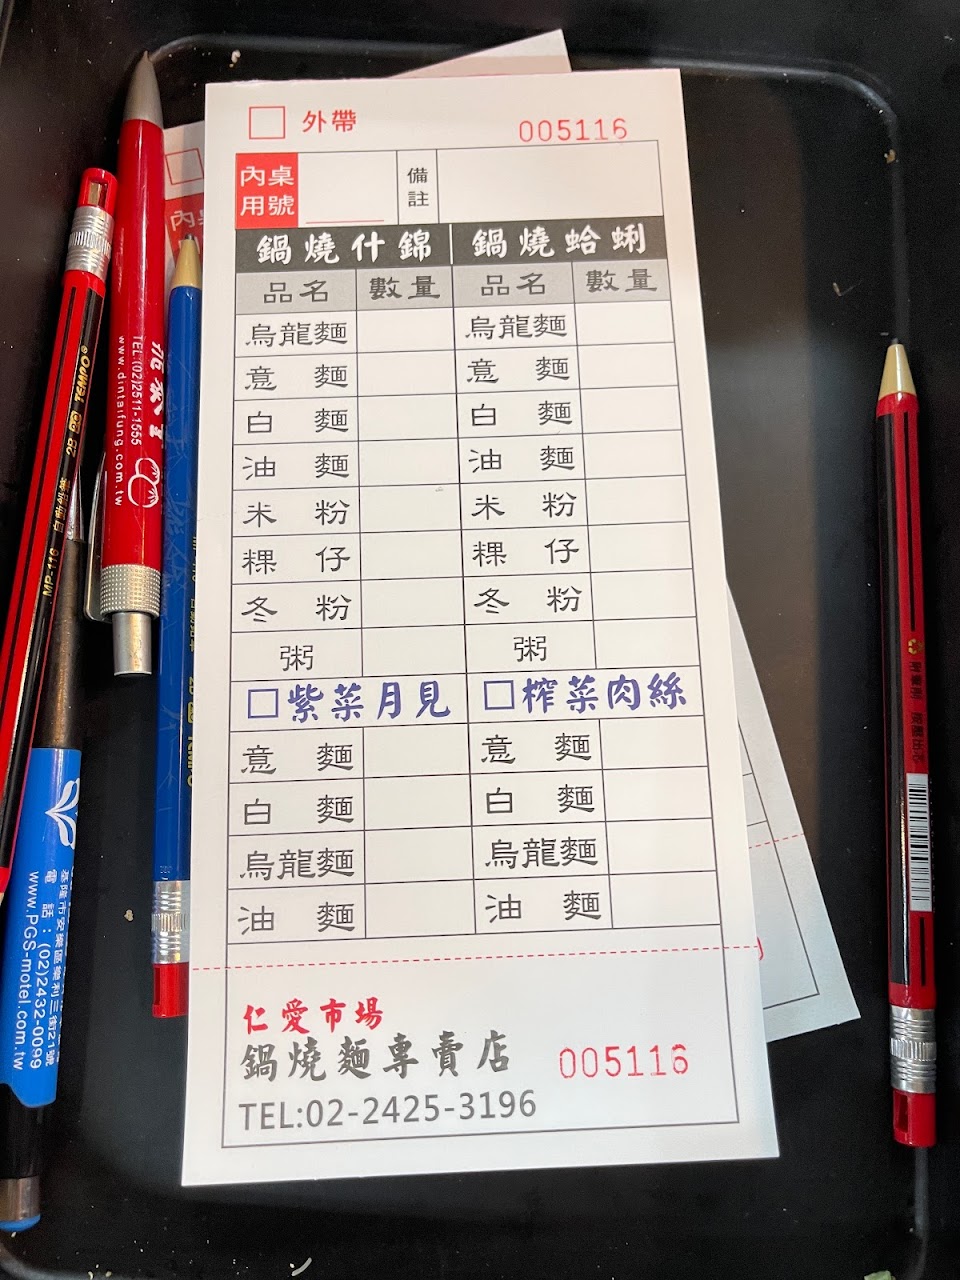 外帶
005116
內用 桌號
備註
鍋燒什錦 鍋燒蛤蜊
品名 數量 品名 數量
烏龍麵 烏龍麵
意麵 意麵
白麵 白麵
油麵 油麵
米粉 米粉
粿仔 粿仔
冬粉 冬粉
粥 粥
□紫菜月見 □榨菜肉絲
意麵 意麵
白麵 白麵
烏龍麵 烏龍麵
油麵 油麵
仁愛市場
鍋燒麵專賣店 005116
TEL:02-2425-3196
TEL:(02)2511-1555
www.dintaifung.com.tw
MP-116 自動鉛筆 2B TEMPO
電話：(02)2432-0099
www.PGS-motel.com.tw